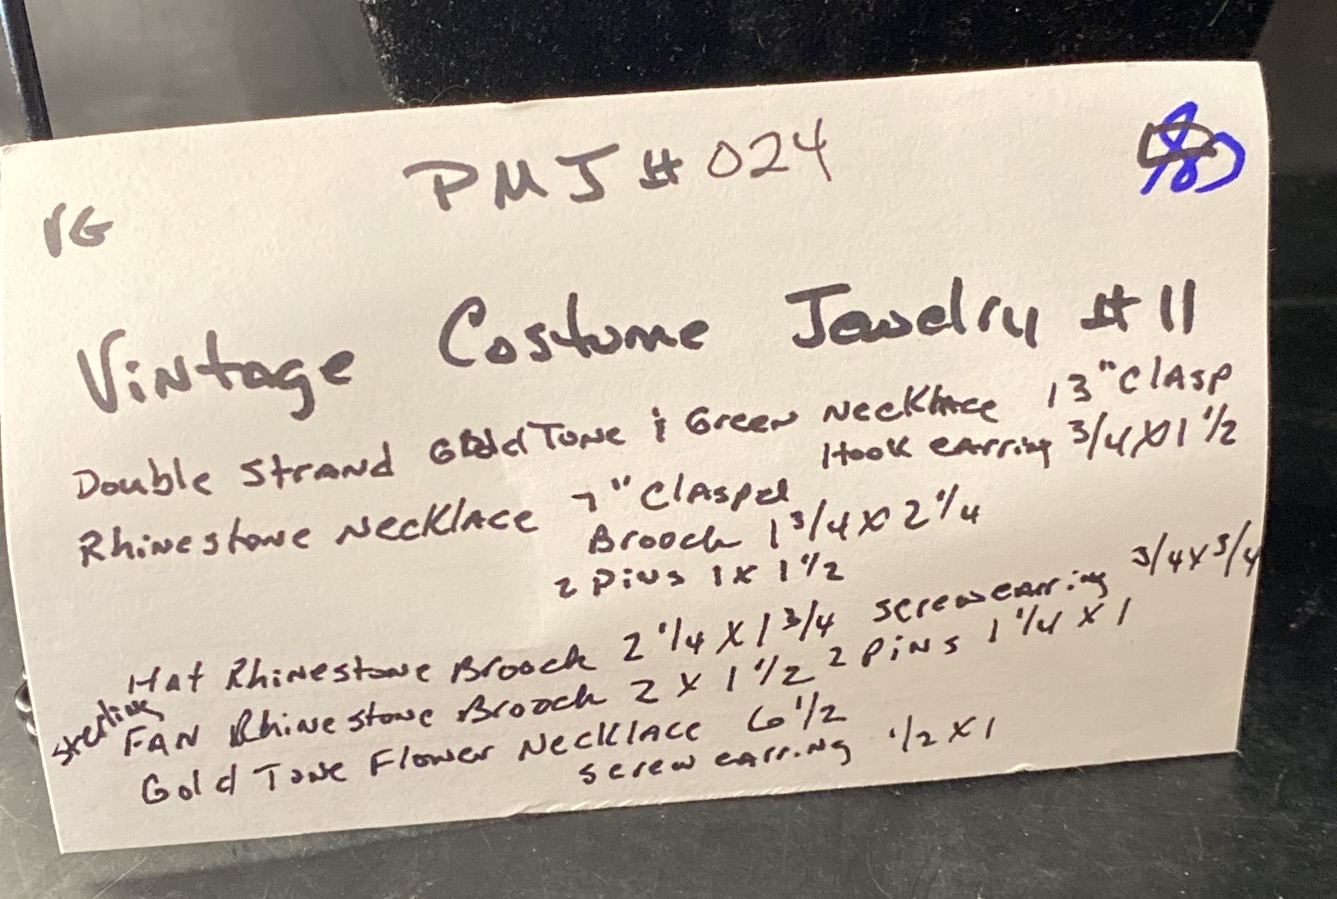 PMJ # 024
VG
Vintage Costume Jewelry # 11
Double Strand Gold Tone & Green Necklace 13" Clasp
Hook earring 3/4 X 1 1/2
Rhinestone Necklace 7" Clasped
Brooch 1 3/4 X 2 1/4
2 Pins 1 X 1 1/2
Hat Rhinestone Brooch 2 1/4 X 1 3/4 screw earring 3/4 X 3/4
Sterling FAN Rhinestone Brooch 2 X 1 1/2 2 Pins 1 1/4 X 1
Gold Tone Flower Necklace 6 1/2
screw earring 1/2 X 1